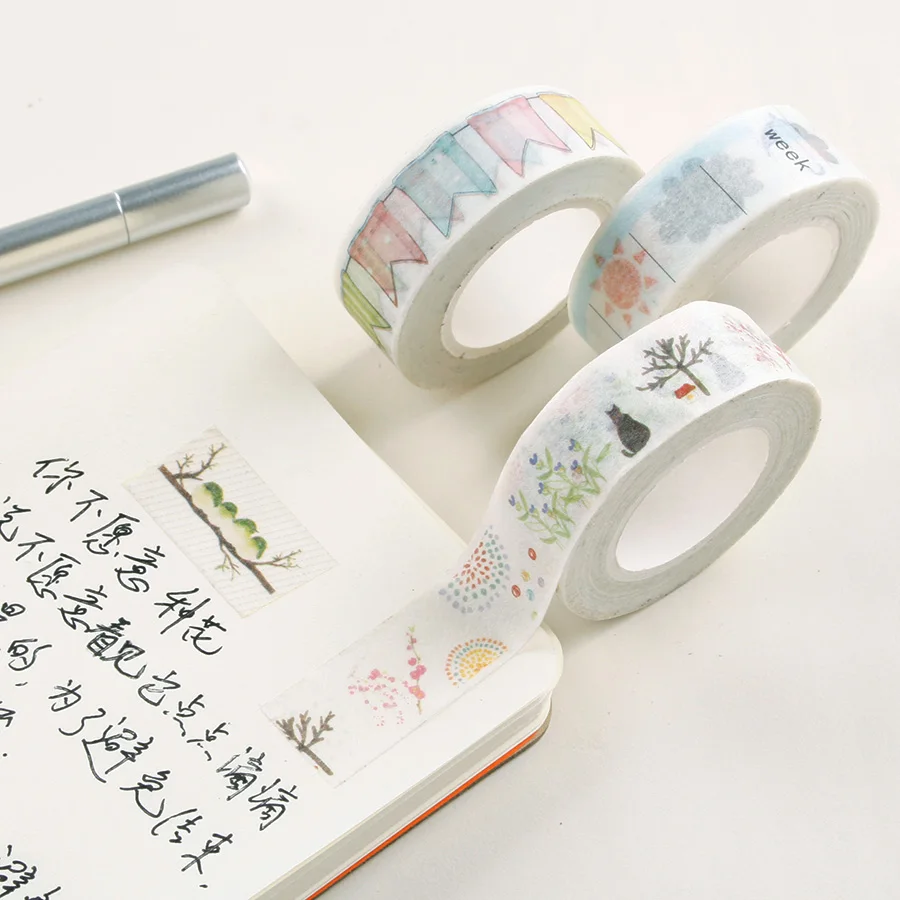 week
你不愿意种花
说不愿意看见它点点滴滴
的,为了避免结束,